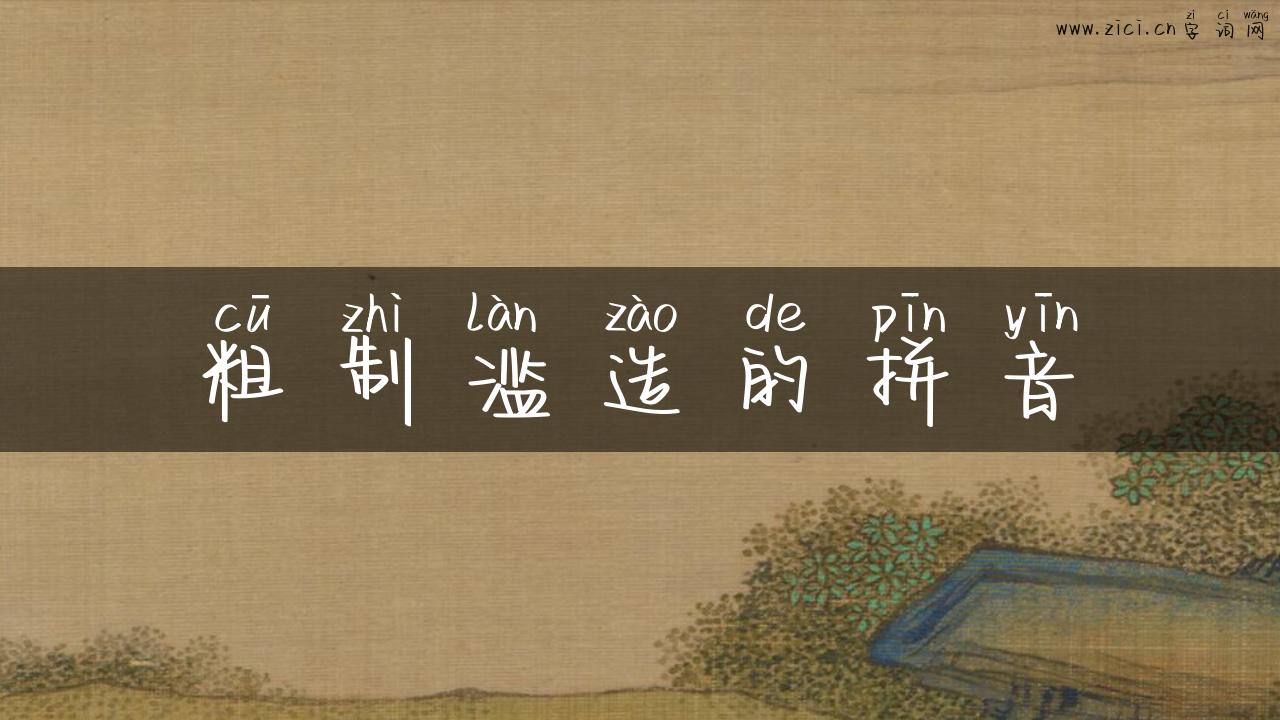 zì cí wǎng
www.zici.cn 字词网
cū zhì làn zào de pīn yīn
粗制滥造的拼音